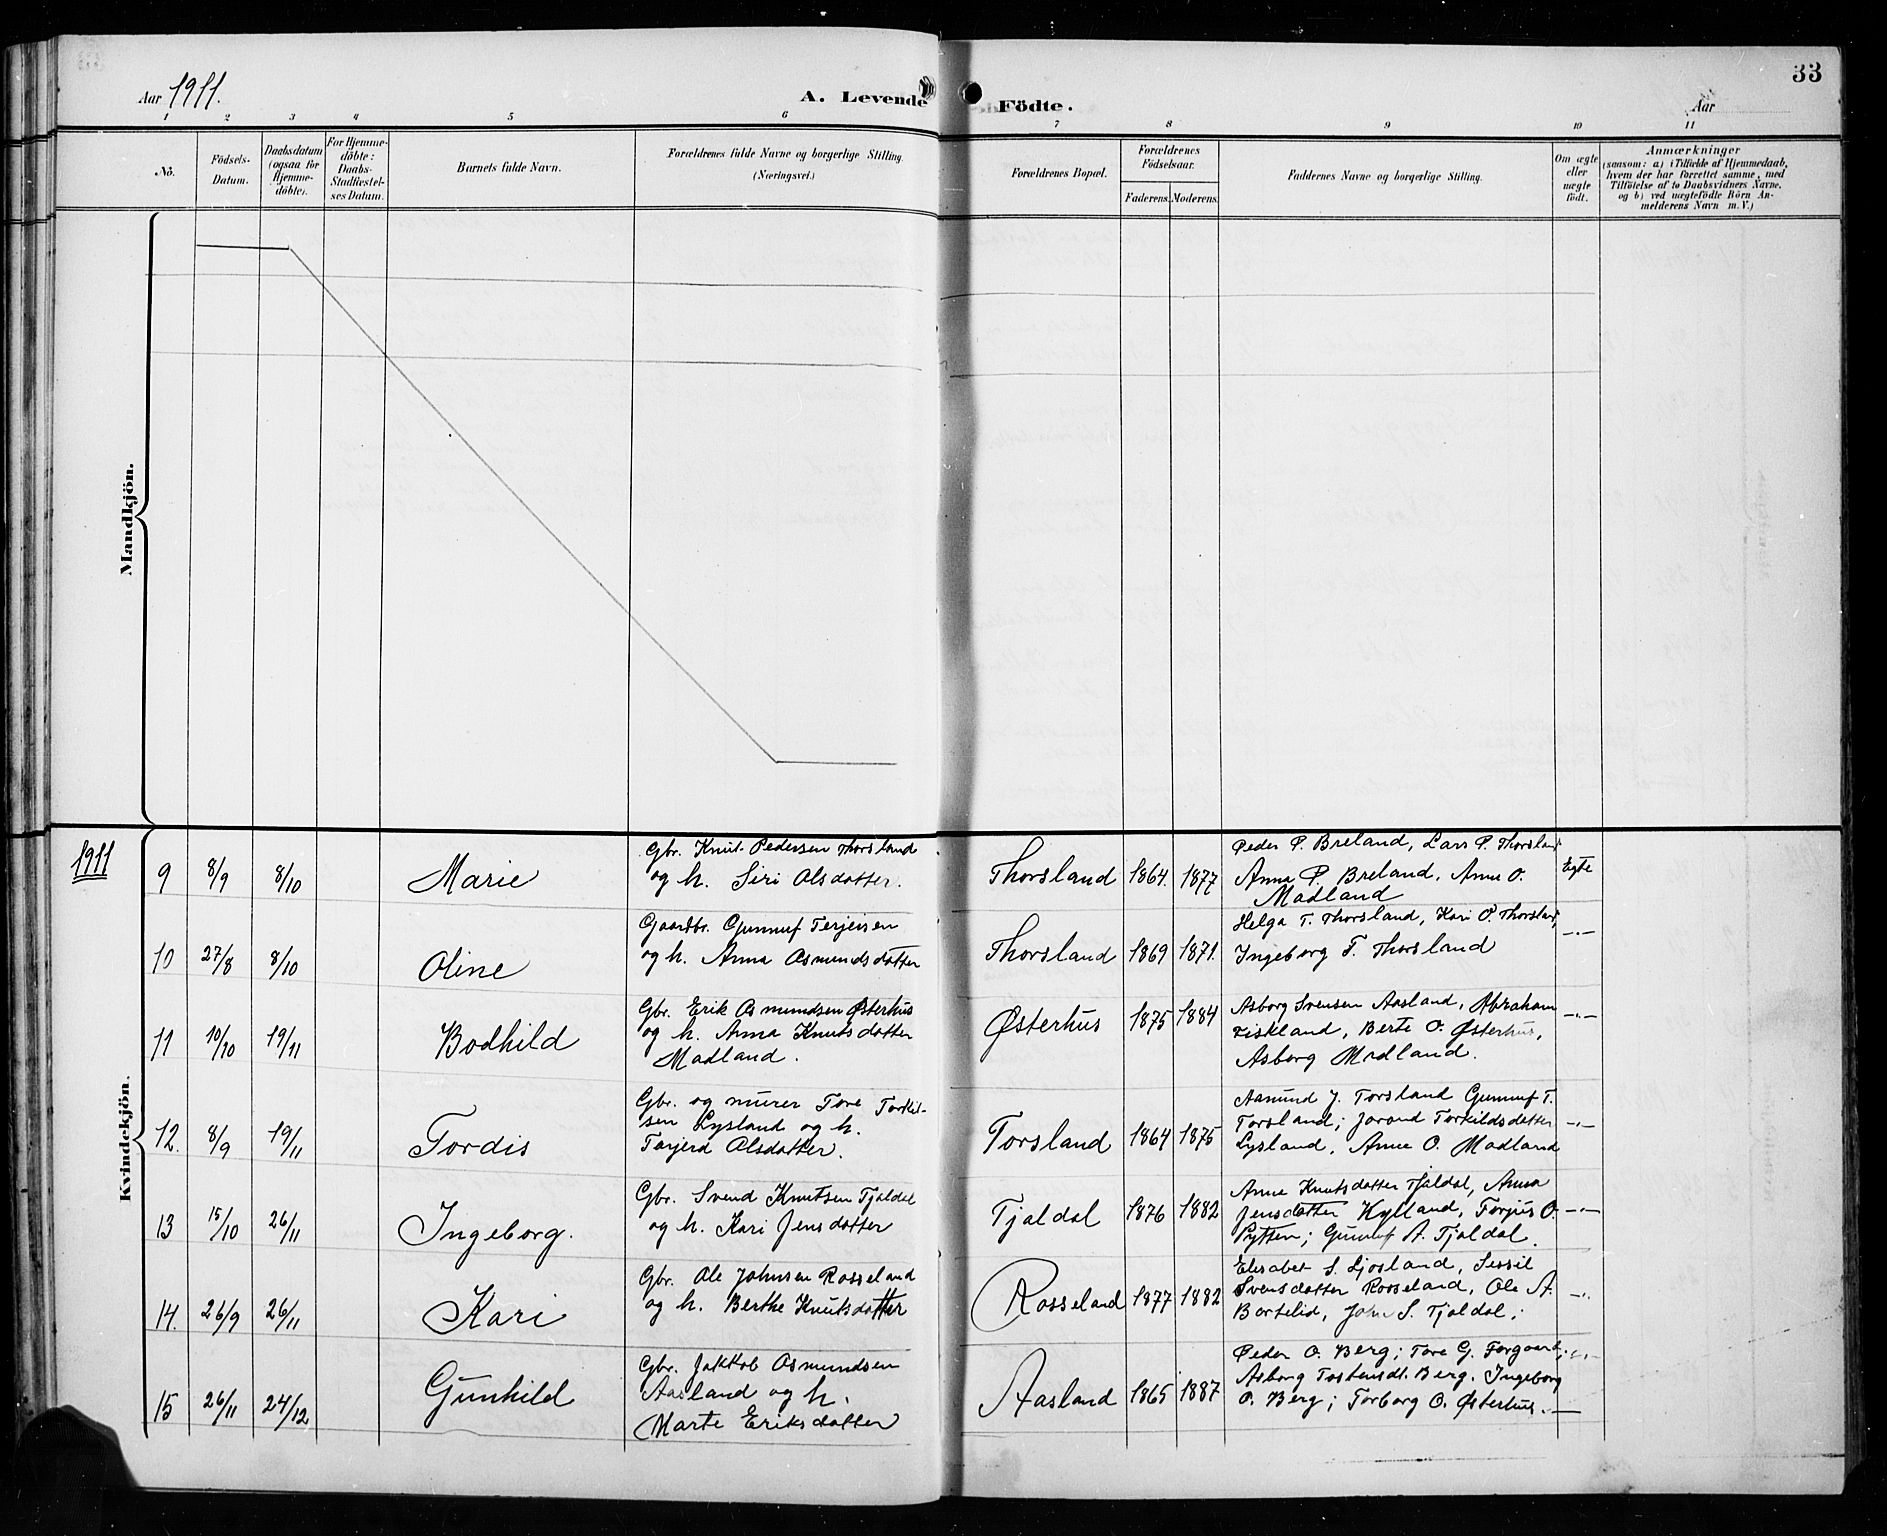 33
Aar 1911.
A. Levende Födte.
Aar
1 2 3 4 5 6 7 8 9 10 11
No.
Födsels-
Datum.
Daabsdatum
(ogsaa for
Hjemme-
döbte).
For Hjemme-
döbte:
Daabs-
Stadfæstel-
ses Datum.
Barnets fulde Navn.
Forældrenes fulde Navne og borgerlige Stilling.
(Næringsvei.)
Forældrenes Bopæl.
Forældrenes
Födselsaar.
Faderens. Moderens.
Faddernes Navne og borgerlige Stilling.
Om ægte
eller
uægte
födt.
Anmærkninger
(saasom: a) i Tilfælde af Hjemmedaab,
hvem der har forrettet samme, med
Tilföielse af to Daabsvidners Navne.
og b) ved uægtefödte Börn An-
melderens Navn m. V.)
Mandkjön.
Kvindekjön.
1911
9 8/9 8/10 Marie
Gbr. Knut Pedersen Thorsland
og h. Siri Olsdatter.
Thorsland 1864. 1877
Peder P. Breland, Lars P. Thorsland
Anna P. Breland, Anne O.
Madland
Egte
10 27/8 8/10 Oline
Gaardbr. Gunnuf Terjeisen
og h. Anna Osmundsdatter
Thorsland 1869 1871.
Helga T. Thorsland, Kari O. Thorsland,
Ingeborg T. Thorsland
-"-
11 10/10 19/11 Bodhild
Gbr. Erik Osmundsen Østerhus
og h. Anna Knutsdatter
Madland.
Østerhus 1875 1884
Asborg Svensen Aasland, Abraham
Fiskland, Berte O. Østerhus,
Asborg Madland.
-"-
12. 8/9 19/11 Tordis
Gbr. og murer Tore Torkil-
sen Lysland og h.
Torjerd Olsdatter.
Torsland 1864 1875
Aamund J. Torsland Gunnuf T.
Torsland; Jorand Torkildsdatter
Lysland, Anne O. Madland
-"-
13 15/10 26/11 Ingeborg.
Gbr. Svend Knutsen Tjaldal
og h. Kari Jensdatter
Tjaldal 1876 1882
Anne Knutsdatter Tjaldal, Anna
Jensdatter Kylland, Torjus O.
Pytten; Gunnuf A. Tjaldal.
-"-
14. 26/9 26/11 Kari
Gbr. Ole Johnsen Rosseland
og h. Berthe Knutsdatter
Rosseland 1877 1882
Elisabet S. Ljosland, Sessil
Svensdatter Rosseland, Ole A.
Bortelid, John S. Tjaldal;
-"-
15 26/11 24/12 Gunhild
Gbr. Jakkob Osmundsen
Aasland og h.
Marte Eriksdatter
Aasland 1865 1887
Peder O. Berg; Tore G. Forgaard;
Asborg Tostensdt. Berg. Ingeborg
O. Berg; Torborg O. Østerhus.
-"-